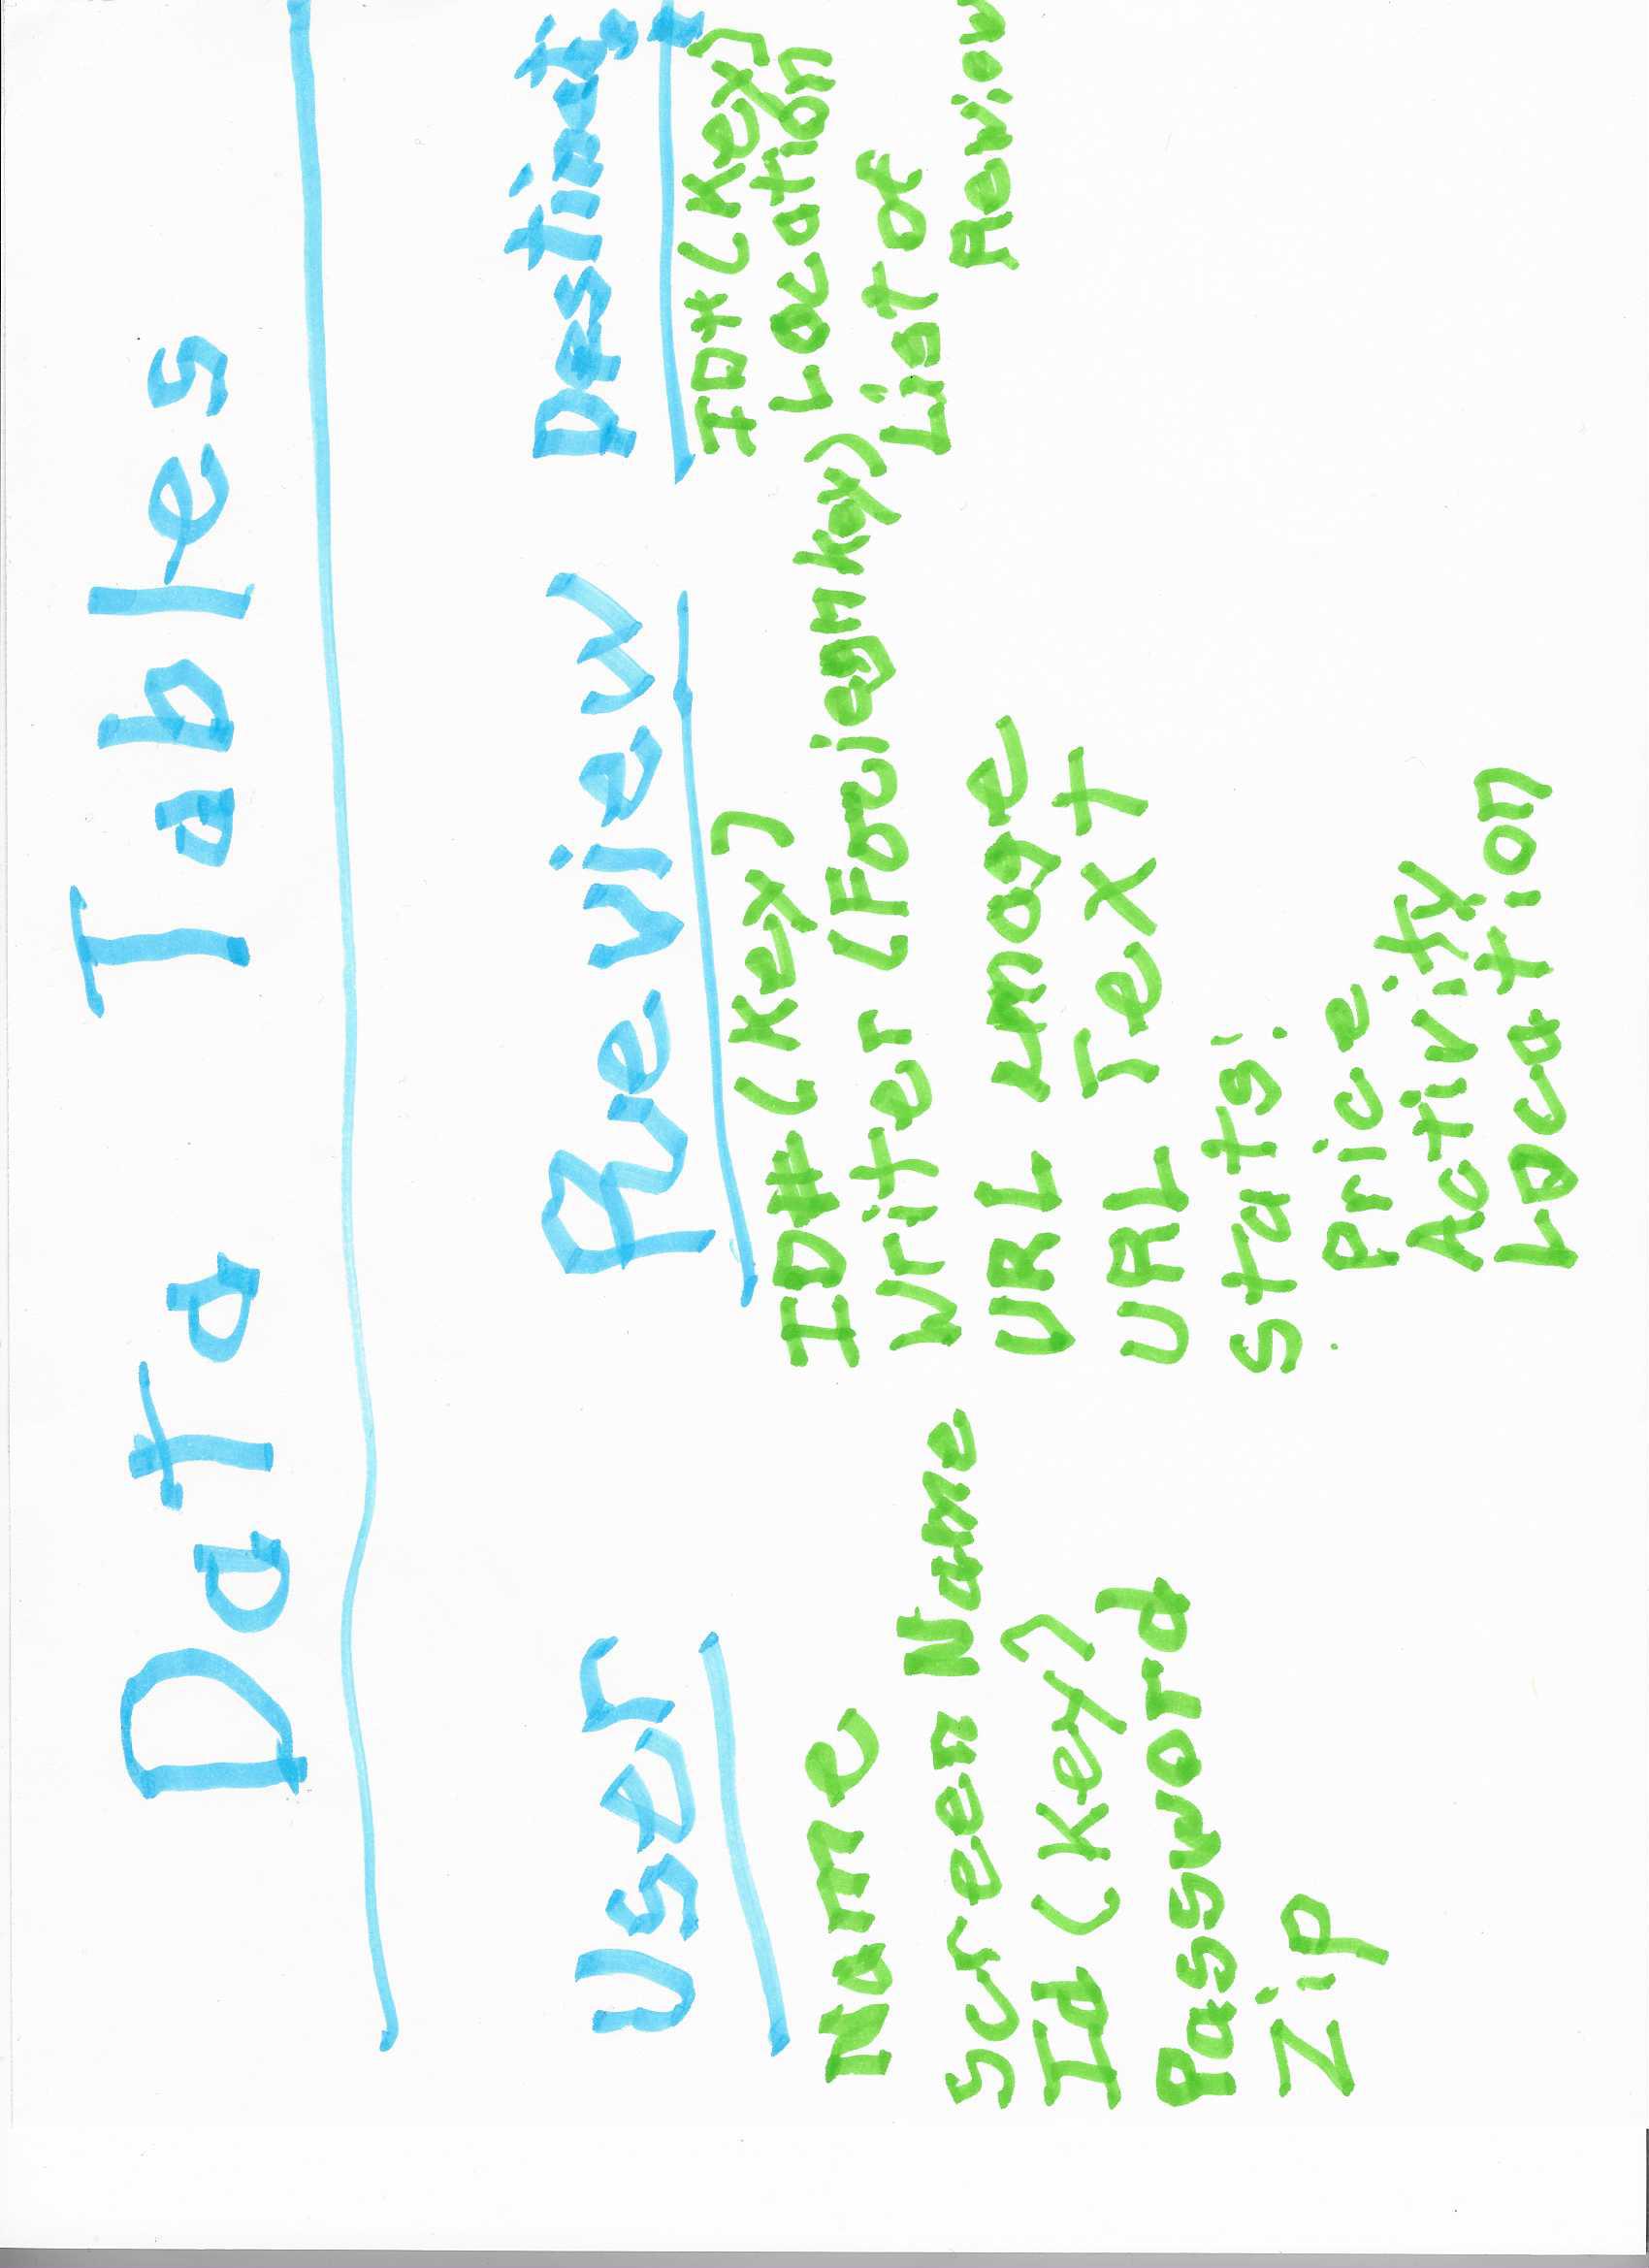 Data Tables
User
Name
Screen Name
Id (Key)
Password
Zip
Review
ID# (Key)
Writer (Foriegn key)
URL image
URL Text
Stats:
Price
Activity
Location
ID# (Key)
Location
List of
Review